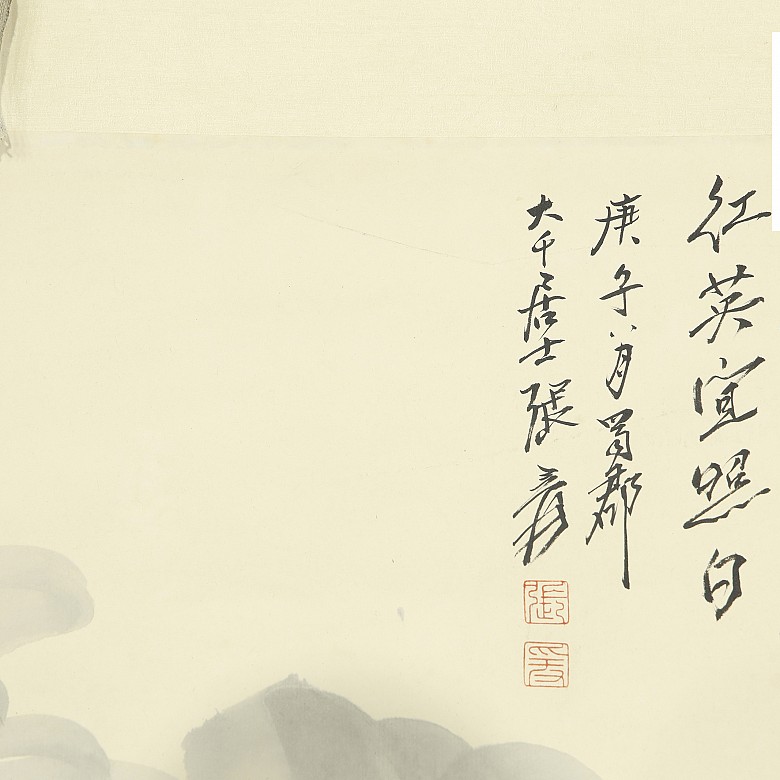 紅英宜照日
庚子八月蜀郡
大千居士張爰
張爰